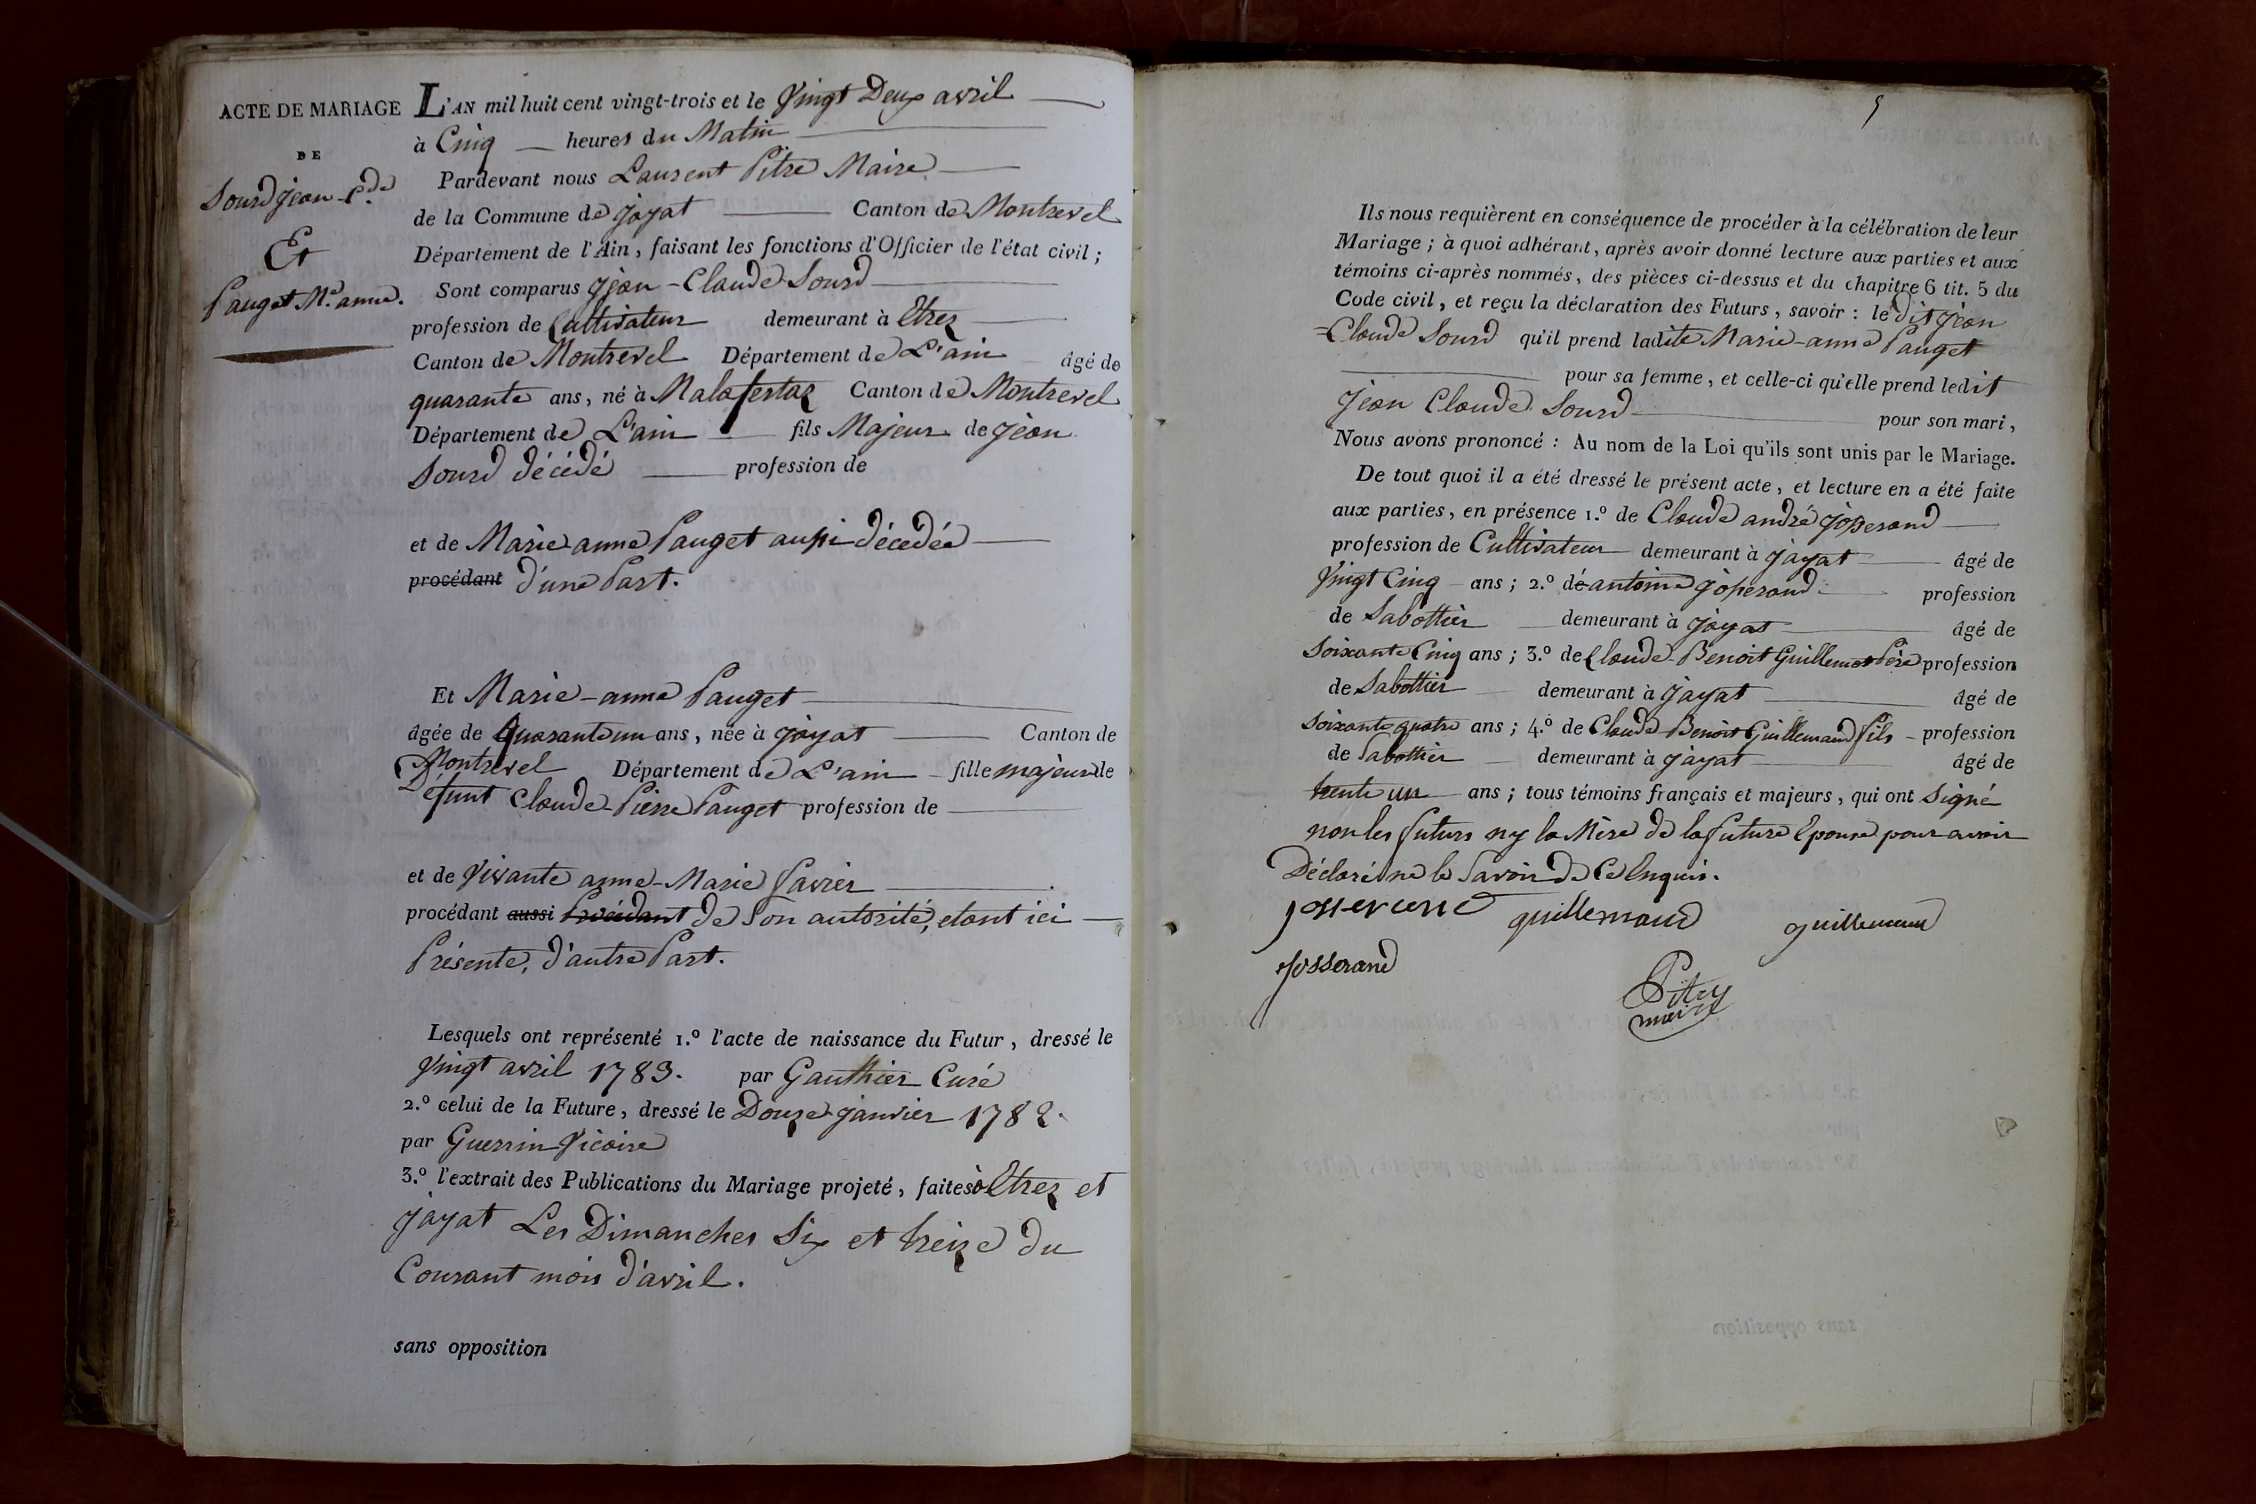 ACTE DE MARIAGE
DE
Sourd jean-C.de
Et
Pauget M.e anne.
L'AN mil huit cent vingt-trois et le Vingt Deux avril
à Cinq heures du Matin
Pardevant nous Laurent Pitre Maire
de la Commune de jayat Canton de Montrevel
Département de l'Ain, faisant les fonctions d'Officier de l'état civil;
Sont comparus jean-Claude Sourd
profession de Cultivateur demeurant à Etrez
Canton de Montrevel Département de L'ain âgé de
quarante ans, né à Malafertaz Canton de Montrevel
Département de L'ain fils Majeur de jean
Sourd décédé profession de
et de Marie anne Pauget aussi décedée
procédant d'une Part.
Et Marie-anne Pauget
âgée de quarante un ans, née à jayat Canton de
Montrevel Département de L'ain fille majeur de
Défunt Claude-Pierre Pauget profession de
et de Vivante anne-Marie favier
procédant aussi Procédant de Son autorité, etant ici
Présente, d'autre Part.
Lesquels ont représenté 1.º l'acte de naissance du Futur, dressé le
Vingt avril 1783. par Gauthier Curé
2.º celui de la Future, dressé le Douze janvier 1782.
par Guerrin Vicaire
3.º l'extrait des Publications du Mariage projeté, faites à Etrez et
jayat Les Dimanches Six et treize du
Courant mois d'avril.
sans opposition
5
Ils nous requièrent en conséquence de procéder à la célébration de leur
Mariage; à quoi adhérant, après avoir donné lecture aux parties et aux
témoins ci-après nommés, des pièces ci-dessus et du chapitre 6 tit. 5 du
Code civil, et reçu la déclaration des Futurs, savoir: le dit jean
=Claude Sourd qu'il prend ladite Marie-anne Pauget
pour sa femme, et celle-ci qu'elle prend ledit
jean Claude Sourd pour son mari,
Nous avons prononcé: Au nom de la Loi qu'ils sont unis par le Mariage.
De tout quoi il a été dressé le présent acte, et lecture en a été faite
aux parties, en présence 1.º de Claude andré josserand
profession de Cultivateur demeurant à jayat âgé de
Vingt Cinq ans; 2.º de antoine josserand profession
de Sabottier demeurant à jayat âgé de
Soixante Cinq ans; 3.º de Claude-Benoit Guillemot Père profession
de Sabottier demeurant à jayat âgé de
Soixante quatre ans; 4.º de Claude Benoit Guillemaud fils profession
de Sabottier demeurant à jayat âgé de
trente un ans; tous témoins français et majeurs, qui ont Signé
non les futurs ny la Mère de la future Epouse pour avoir
Déclaré ne le Savoir de Ce Enquis.
guillemaud
guillemaud
josserand
Pitre
maire